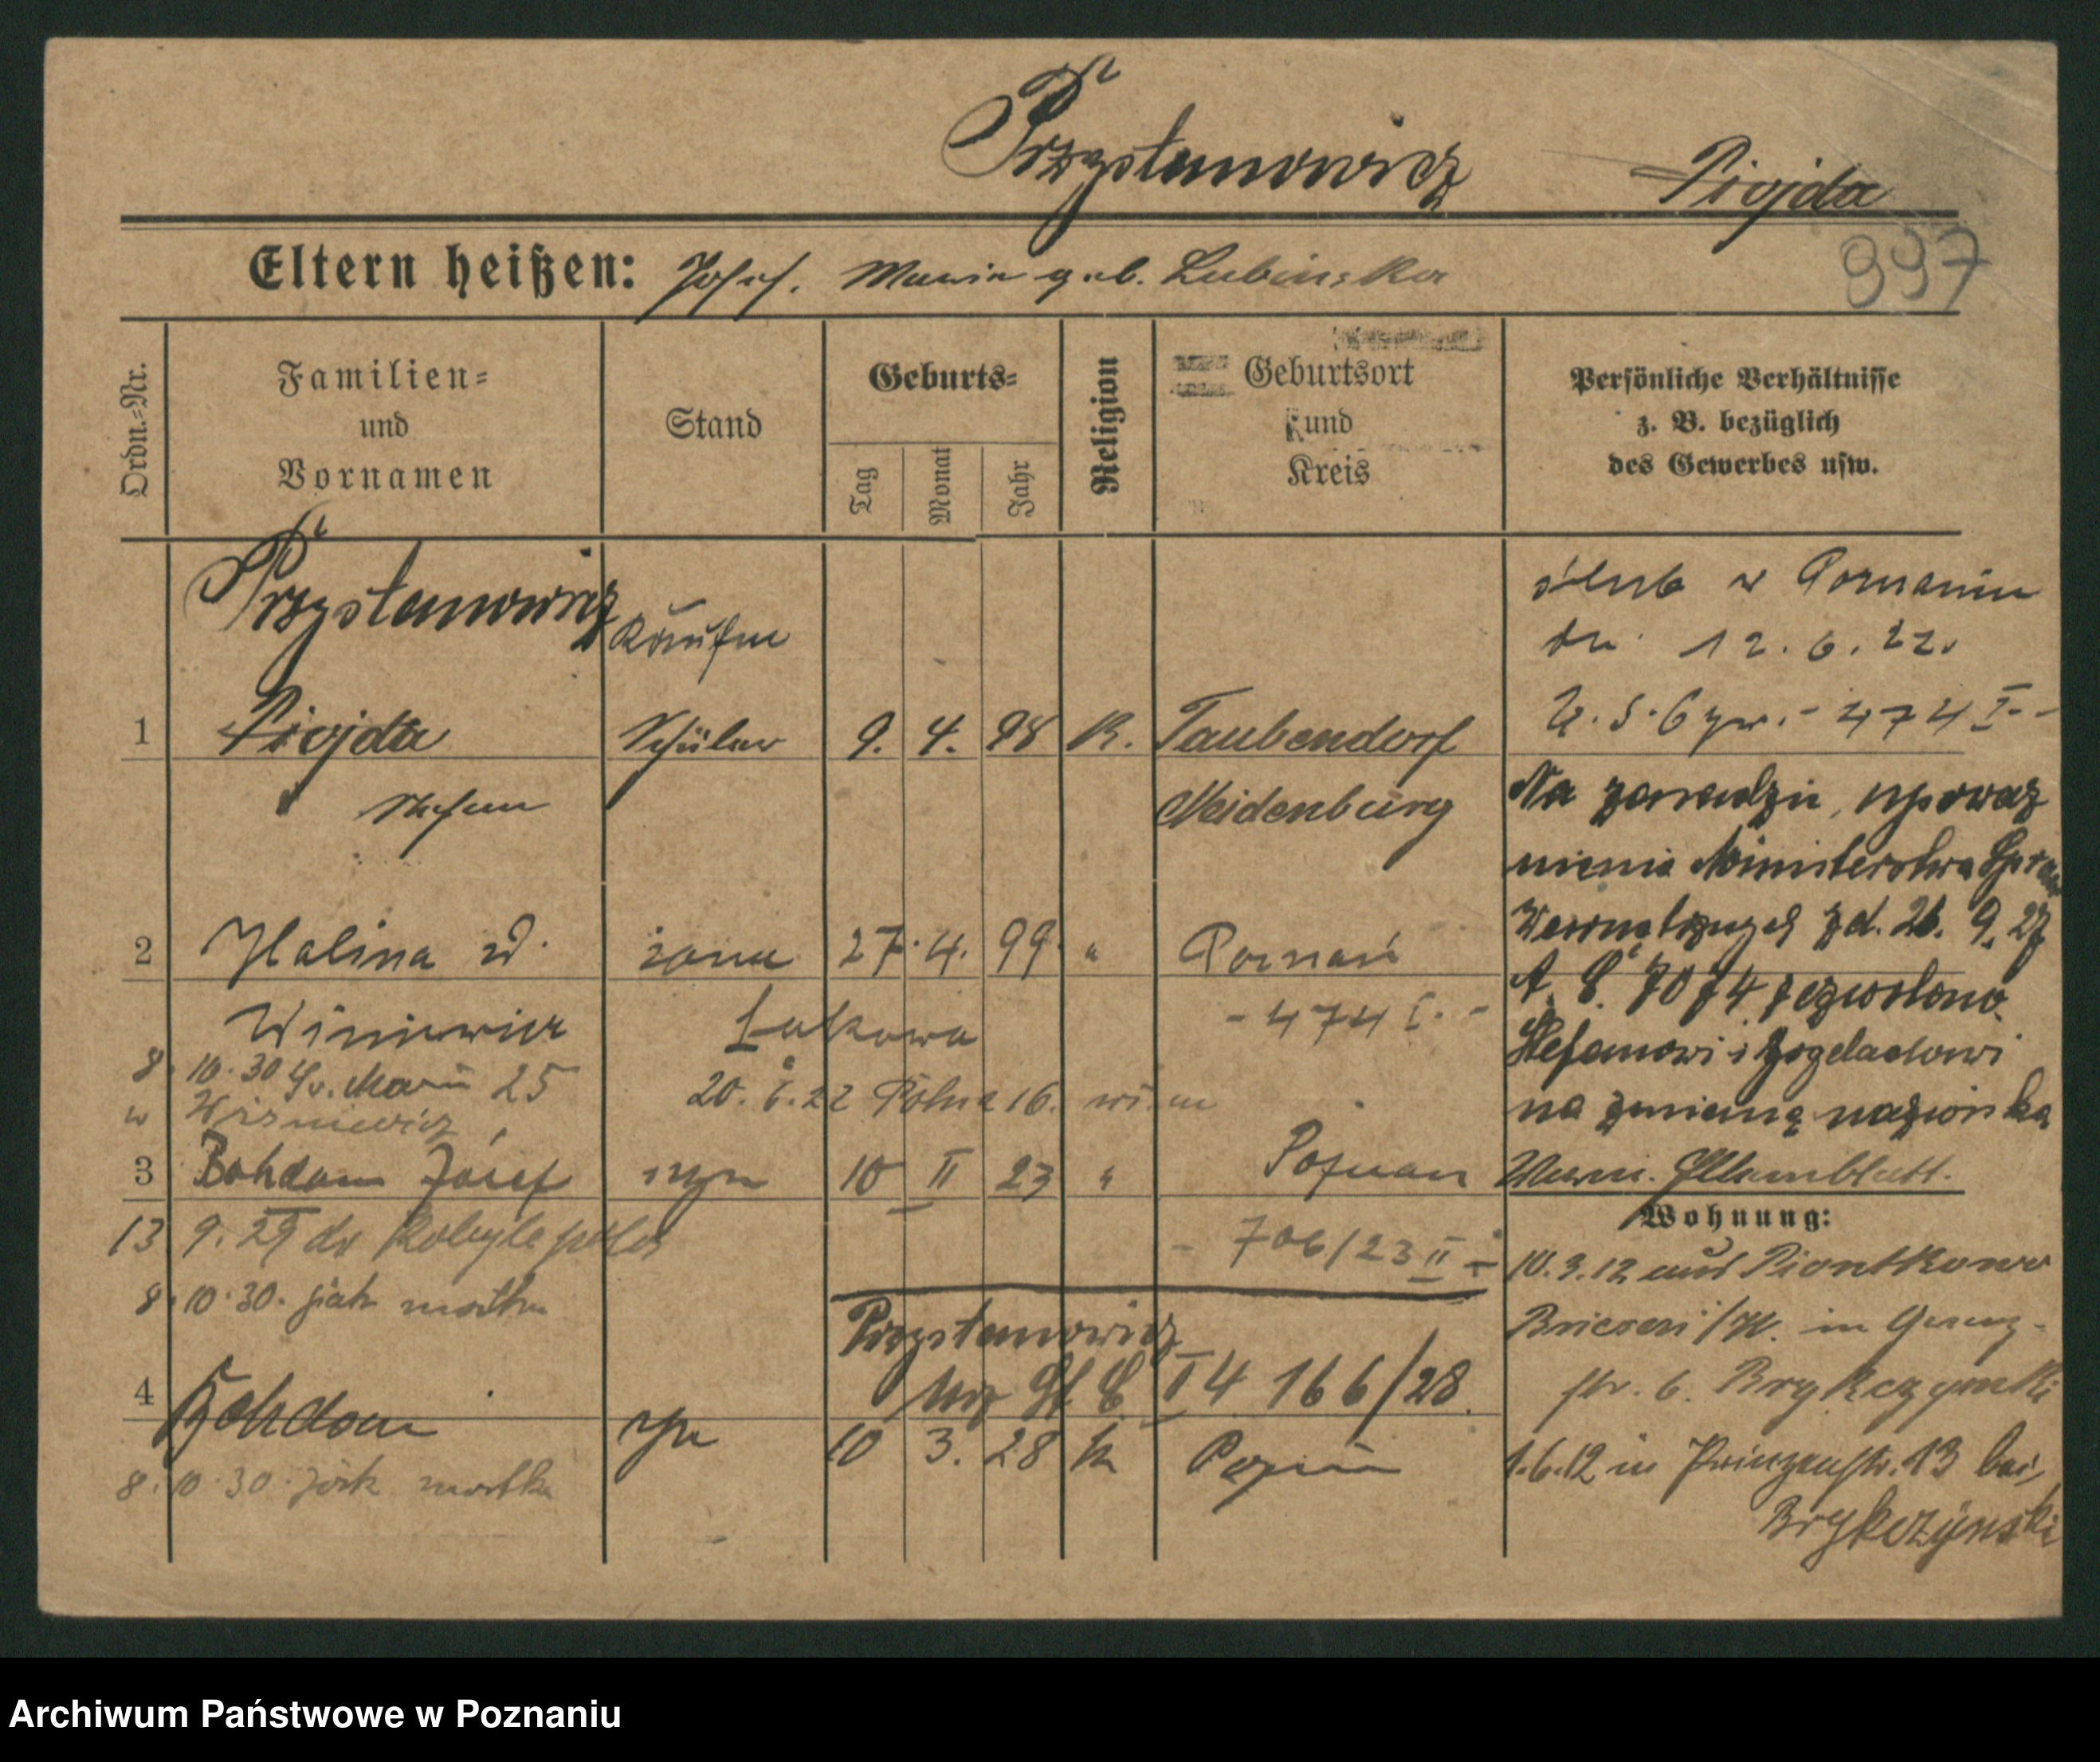 Przystanowicz Pivjda
997
Eltern heißen: Josef. Maria geb. Lubinska
Ordn.=Nr.
Familien=
und
Vornamen
Stand
Geburts=
Tag
Monat
Jahr
Religion
Geburtsort
und
Kreis
Persönliche Verhältnisse
z. B. bezüglich
des Gewerbes usw.
Przystanowicz Kaufm
1 Pivjda Schüler 9. 4. 98 K. Taubendorf
Stefan Neidenburg
ślub w Poznaniu
dn. 12. 6. 22.
474 I
Na zasadzie upoważ
nienia Ministerstwa Spraw
Wewnętrznych z d. 26. 9. 27
7074 zezwolono
Stefanowi i
na zmianę nazwiska
2 Halina żona 27. 4. 99. " Poznań
Winiewicz Łakowa - 474 I. -
8. 10. 30 Św. Marcin 25
w Wiśniewicz
20. 22 Polna 16.
3 Bohdan Józef syn 10 II 23 " Poznań
- 706/23 II -
13 9. 29 do Kobylepole
8. 10. 30. jak matka
Przystanowicz
I 4 166/28.
4 Bohdan syn 10 3. 28 k Poznań
8. 10. 30. jak matka
Wohnung:
10. 3. 12 aus Piontkowo
Briesen / in Grenz-
str. 6. Brykczynski
1.6.12 in Prinzenstr. 13 bei
Brykczynski
Archiwum Państwowe w Poznaniu